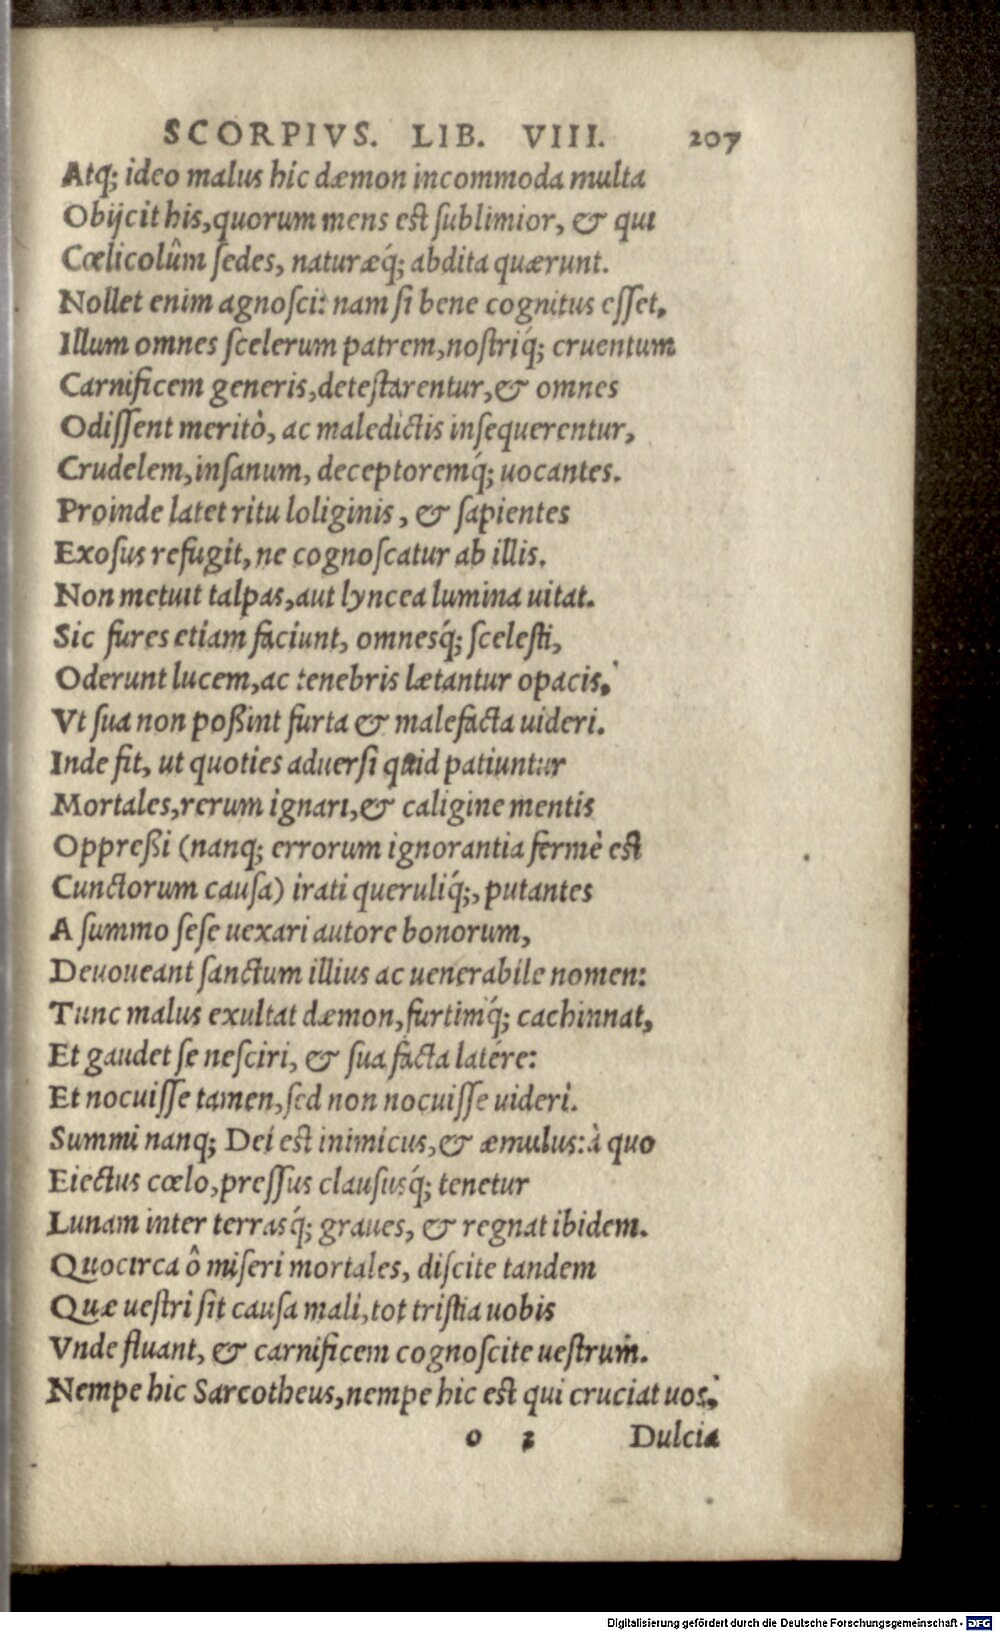 SCORPIVS. LIB. VIII. 207
Atq; ideo malus hic dæmon incommoda multa
Obijcit his, quorum mens est ſublimior, & qui
Cœlicolûm ſedes, naturæq́; abdita quærunt.
Nollet enim agnoſci: nam ſi bene cognitus eſſet,
Illum omnes ſcelerum patrem, noſtriq́; cruentum
Carnificem generis, deteſtarentur, & omnes
Odiſſent meritò, ac maledictis inſequerentur,
Crudelem, inſanum, deceptoremq́; uocantes.
Proinde latet ritu loliginis, & ſapientes
Exoſus refugit, ne cognoſcatur ab illis.
Non metuit talpas, aut lyncea lumina uitat.
Sic fures etiam faciunt, omnesq́; ſceleſti,
Oderunt lucem, ac tenebris lætantur opacis,
Vt ſua non poßint furta & malefacta uideri.
Inde fit, ut quoties aduerſi quid patiuntur
Mortales, rerum ignari, & caligine mentis
Oppreßi (nanq; errorum ignorantia fermè est
Cunctorum cauſa) irati queruliq́;, putantes
A ſummo ſeſe uexari autore bonorum,
Deuoueant ſanctum illius ac uenerabile nomen:
Tunc malus exultat dæmon, furtimq́; cachinnat,
Et gaudet ſe neſciri, & ſua facta latére:
Et nocuiſſe tamen, ſed non nocuiſſe uideri.
Summi nanq; Dei est inimicus, & æmulus: à quo
Eiectus cœlo, preſſus clauſusq́; tenetur
Lunam inter terrasq́; graues, & regnat ibidem.
Quocirca ô miſeri mortales, diſcite tandem
Quæ ueſtri ſit cauſa mali, tot triſtia uobis
Vnde fluant, & carnificem cognoſcite ueſtrum.
Nempe hic Sarcotheus, nempe hic est qui cruciat uos,
o 2 Dulcia
Digitalisierung gefördert durch die Deutsche Forschungsgemeinschaft - DFG